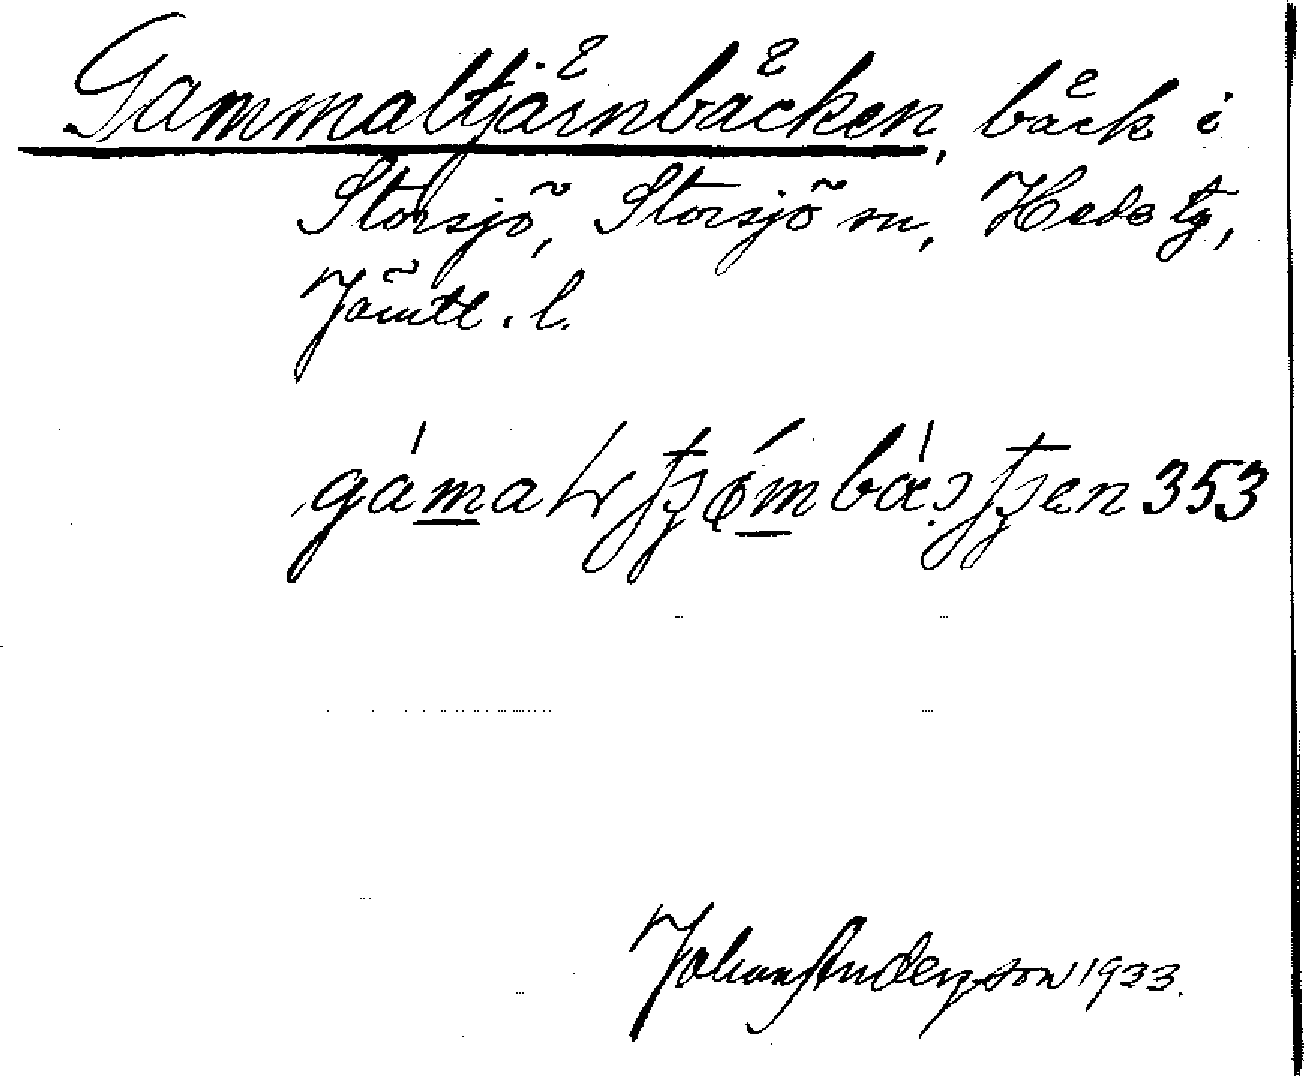 Gammaltjärnbäcken, bäck i
Storsjö, Storsjö sn, Hede tg,
Jämtl. l.
353
Johan Anderzson 1933.